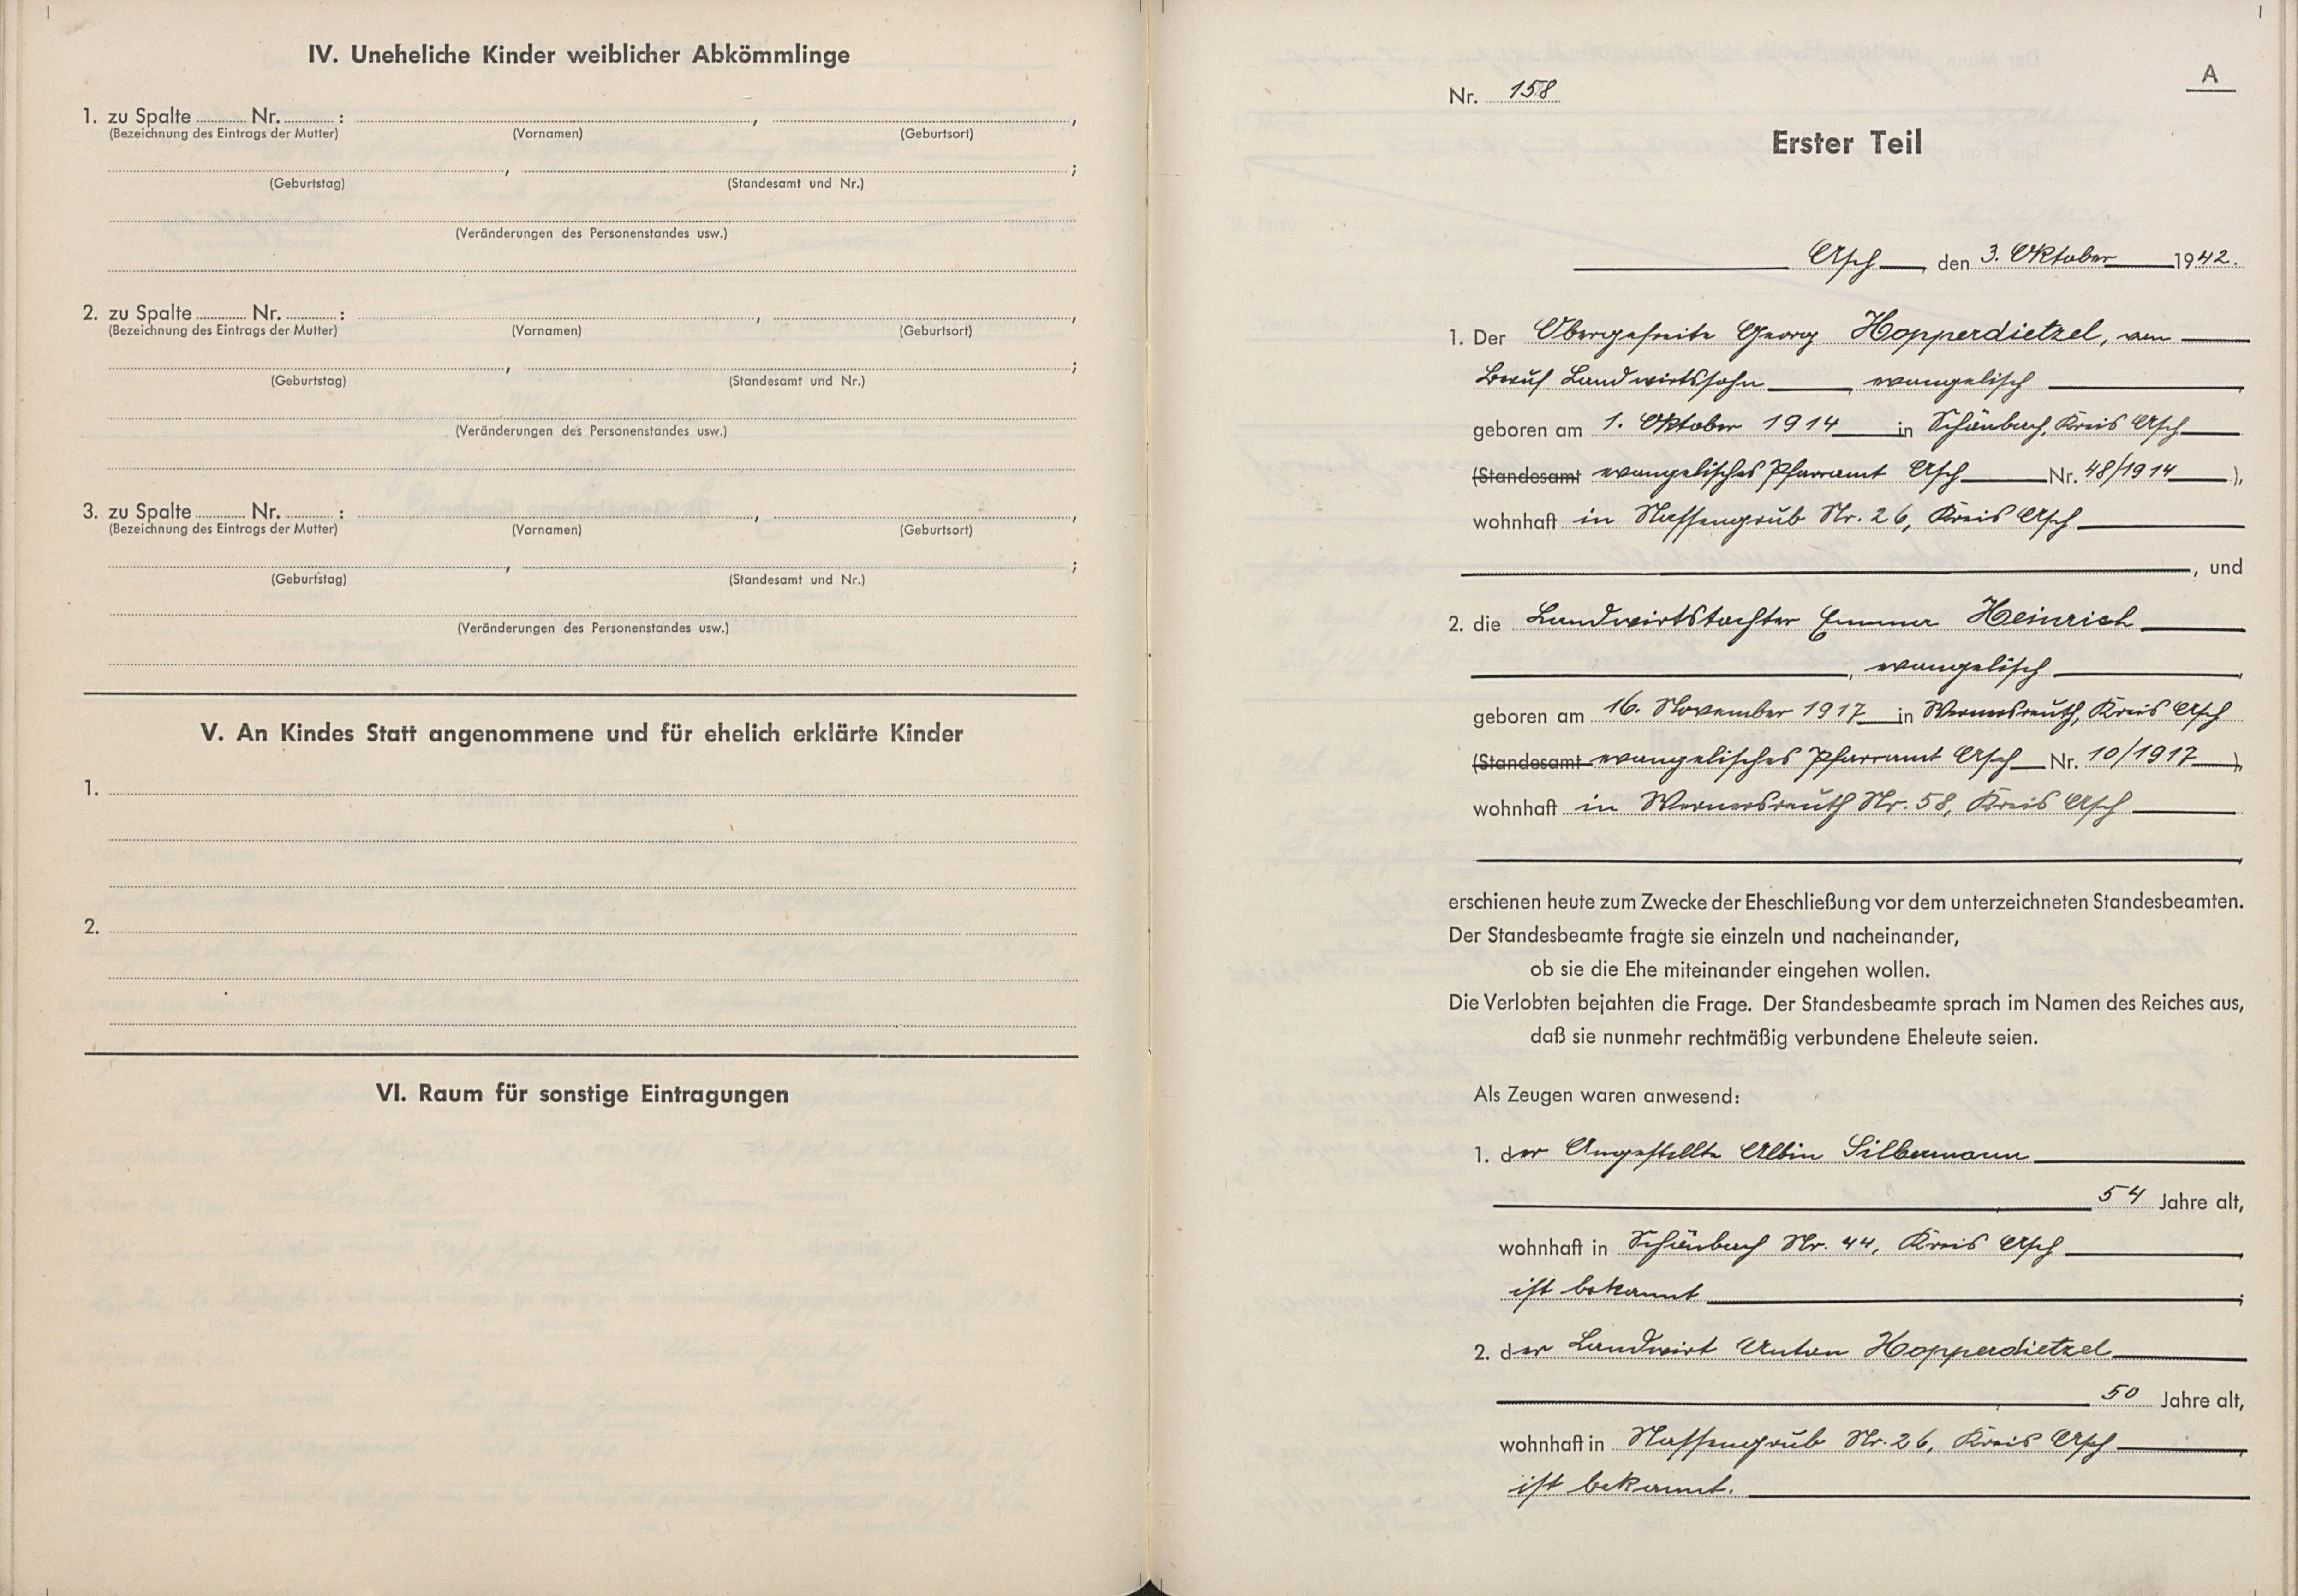 IV. Uneheliche Kinder weiblicher Abkömmlinge
1. zu Spalte ........ Nr. ........ : ........ , ........ ,
(Bezeichnung des Eintrags der Mutter) (Vornamen) (Geburtsort)
........ , ........ ;
(Geburtstag) (Standesamt und Nr.)
(Veränderungen des Personenstandes usw.)
2. zu Spalte ........ Nr. ........ : ........ , ........ ,
(Bezeichnung des Eintrags der Mutter) (Vornamen) (Geburtsort)
........ , ........ ;
(Geburtstag) (Standesamt und Nr.)
(Veränderungen des Personenstandes usw.)
3. zu Spalte ........ Nr. ........ : ........ , ........ ,
(Bezeichnung des Eintrags der Mutter) (Vornamen) (Geburtsort)
........ , ........ ;
(Geburtstag) (Standesamt und Nr.)
(Veränderungen des Personenstandes usw.)
V. An Kindes Statt angenommene und für ehelich erklärte Kinder
1.
2.
VI. Raum für sonstige Eintragungen
A
Nr. 158
Erster Teil
Asch, den 3. Oktober 1942.
1. Der Obergefreite Georg Hopperdietzel, von
Beruf Landwirtssohn, evangelisch,
geboren am 1. Oktober 1914 in Schönbach, Kreis Asch
(Standesamt evangelisches Pfarramt Asch Nr. 48/1914),
wohnhaft in Nassengrub Nr. 26, Kreis Asch
, und
2. die Landwirtstochter Emma Heinrich
, evangelisch,
geboren am 16. November 1917 in Wernersreuth, Kreis Asch
(Standesamt evangelisches Pfarramt Asch Nr. 10/1917),
wohnhaft in Wernersreuth Nr. 58, Kreis Asch
erschienen heute zum Zwecke der Eheschließung vor dem unterzeichneten Standesbeamten.
Der Standesbeamte fragte sie einzeln und nacheinander,
ob sie die Ehe miteinander eingehen wollen.
Die Verlobten bejahten die Frage. Der Standesbeamte sprach im Namen des Reiches aus,
daß sie nunmehr rechtmäßig verbundene Eheleute seien.
Als Zeugen waren anwesend:
1. der Angestellte Albin Silbermann
54 Jahre alt,
wohnhaft in Schönbach Nr. 44, Kreis Asch,
ist bekannt;
2. der Landwirt Anton Hopperdietzel
50 Jahre alt,
wohnhaft in Nassengrub Nr. 26, Kreis Asch,
ist bekannt.